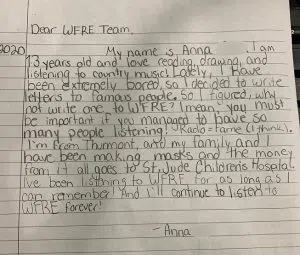 Dear WFRE Team,
2020
My name is Anna. I am
13 years old and love reading, drawing, and
listening to country music! Lately, I have
been extremely bored, so I decided to write
letters to famous people. So I figured, why
not write one to WFRE? I mean, you must
be important if you managed to have so
many people listening! Radio = fame (I think).
I'm from Thurmont, and my family and I
have been making masks and the money
from it all goes to St. Jude Children's Hospital.
I've been listening to WFRE for as long as I
can remember! And I'll continue to listen to
WFRE forever!
- Anna